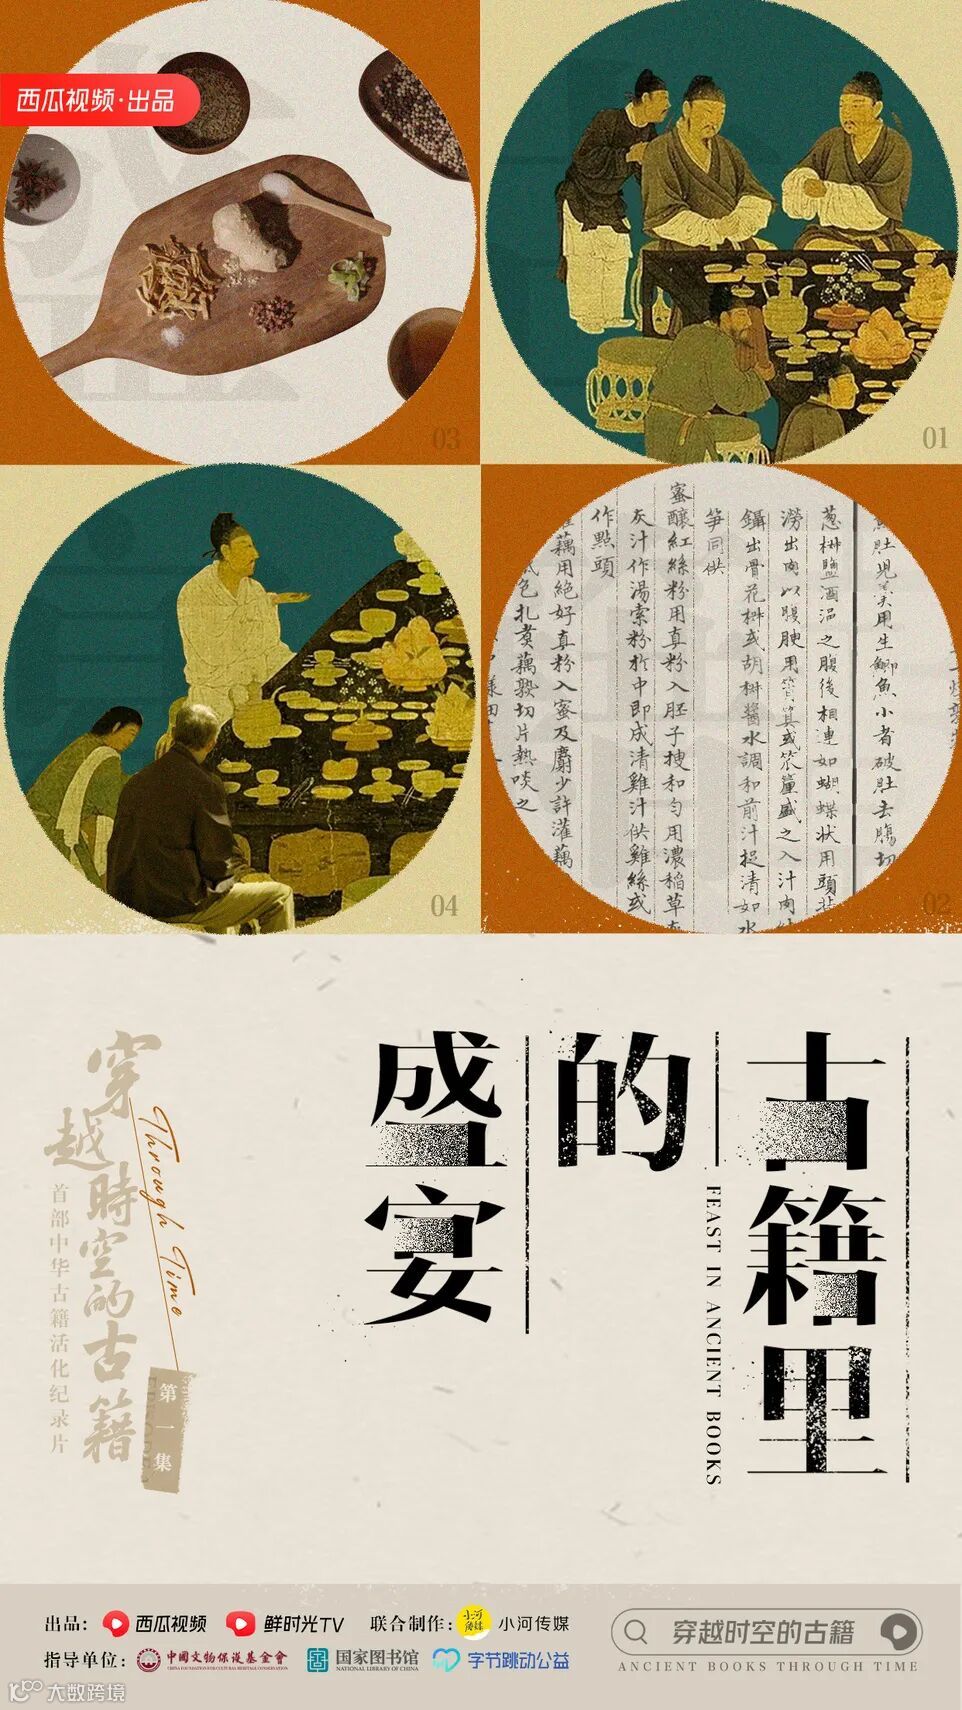 西瓜视频·出品
03
01
04
02
蜜釀紅絲粉用真粉入胚子搜和勻用濃稻草灰
灰汁作湯索粉於中即成清雞汁供雞絲或
作點頭
灌藕用絕好真粉入蜜及麝少許灌藕
色扎煑藕熟切片熱啖之
用生鯽魚小者破肚去腸切
蔥椒鹽酒浥之腹後相連如蝴蝶狀用頭
澇出肉以腹腴用筲箕或笊籬盛之入汁肉
鑷出骨花椒或胡椒醬水調和前汁捉清如水
笋同供
古籍里
的
盛宴
FEAST IN ANCIENT BOOKS
穿越時空的古籍
Through Time
首部中华古籍活化纪录片
第一集
出品：西瓜视频 鲜时光TV 联合制作：小河传媒 小河传媒
指导单位：中國文物保護基金會 CHINA FOUNDATION FOR CULTURAL HERITAGE CONSERVATION 国家图书馆 NATIONAL LIBRARY OF CHINA 字节跳动公益
穿越时空的古籍
ANCIENT BOOKS THROUGH TIME
大数跨境